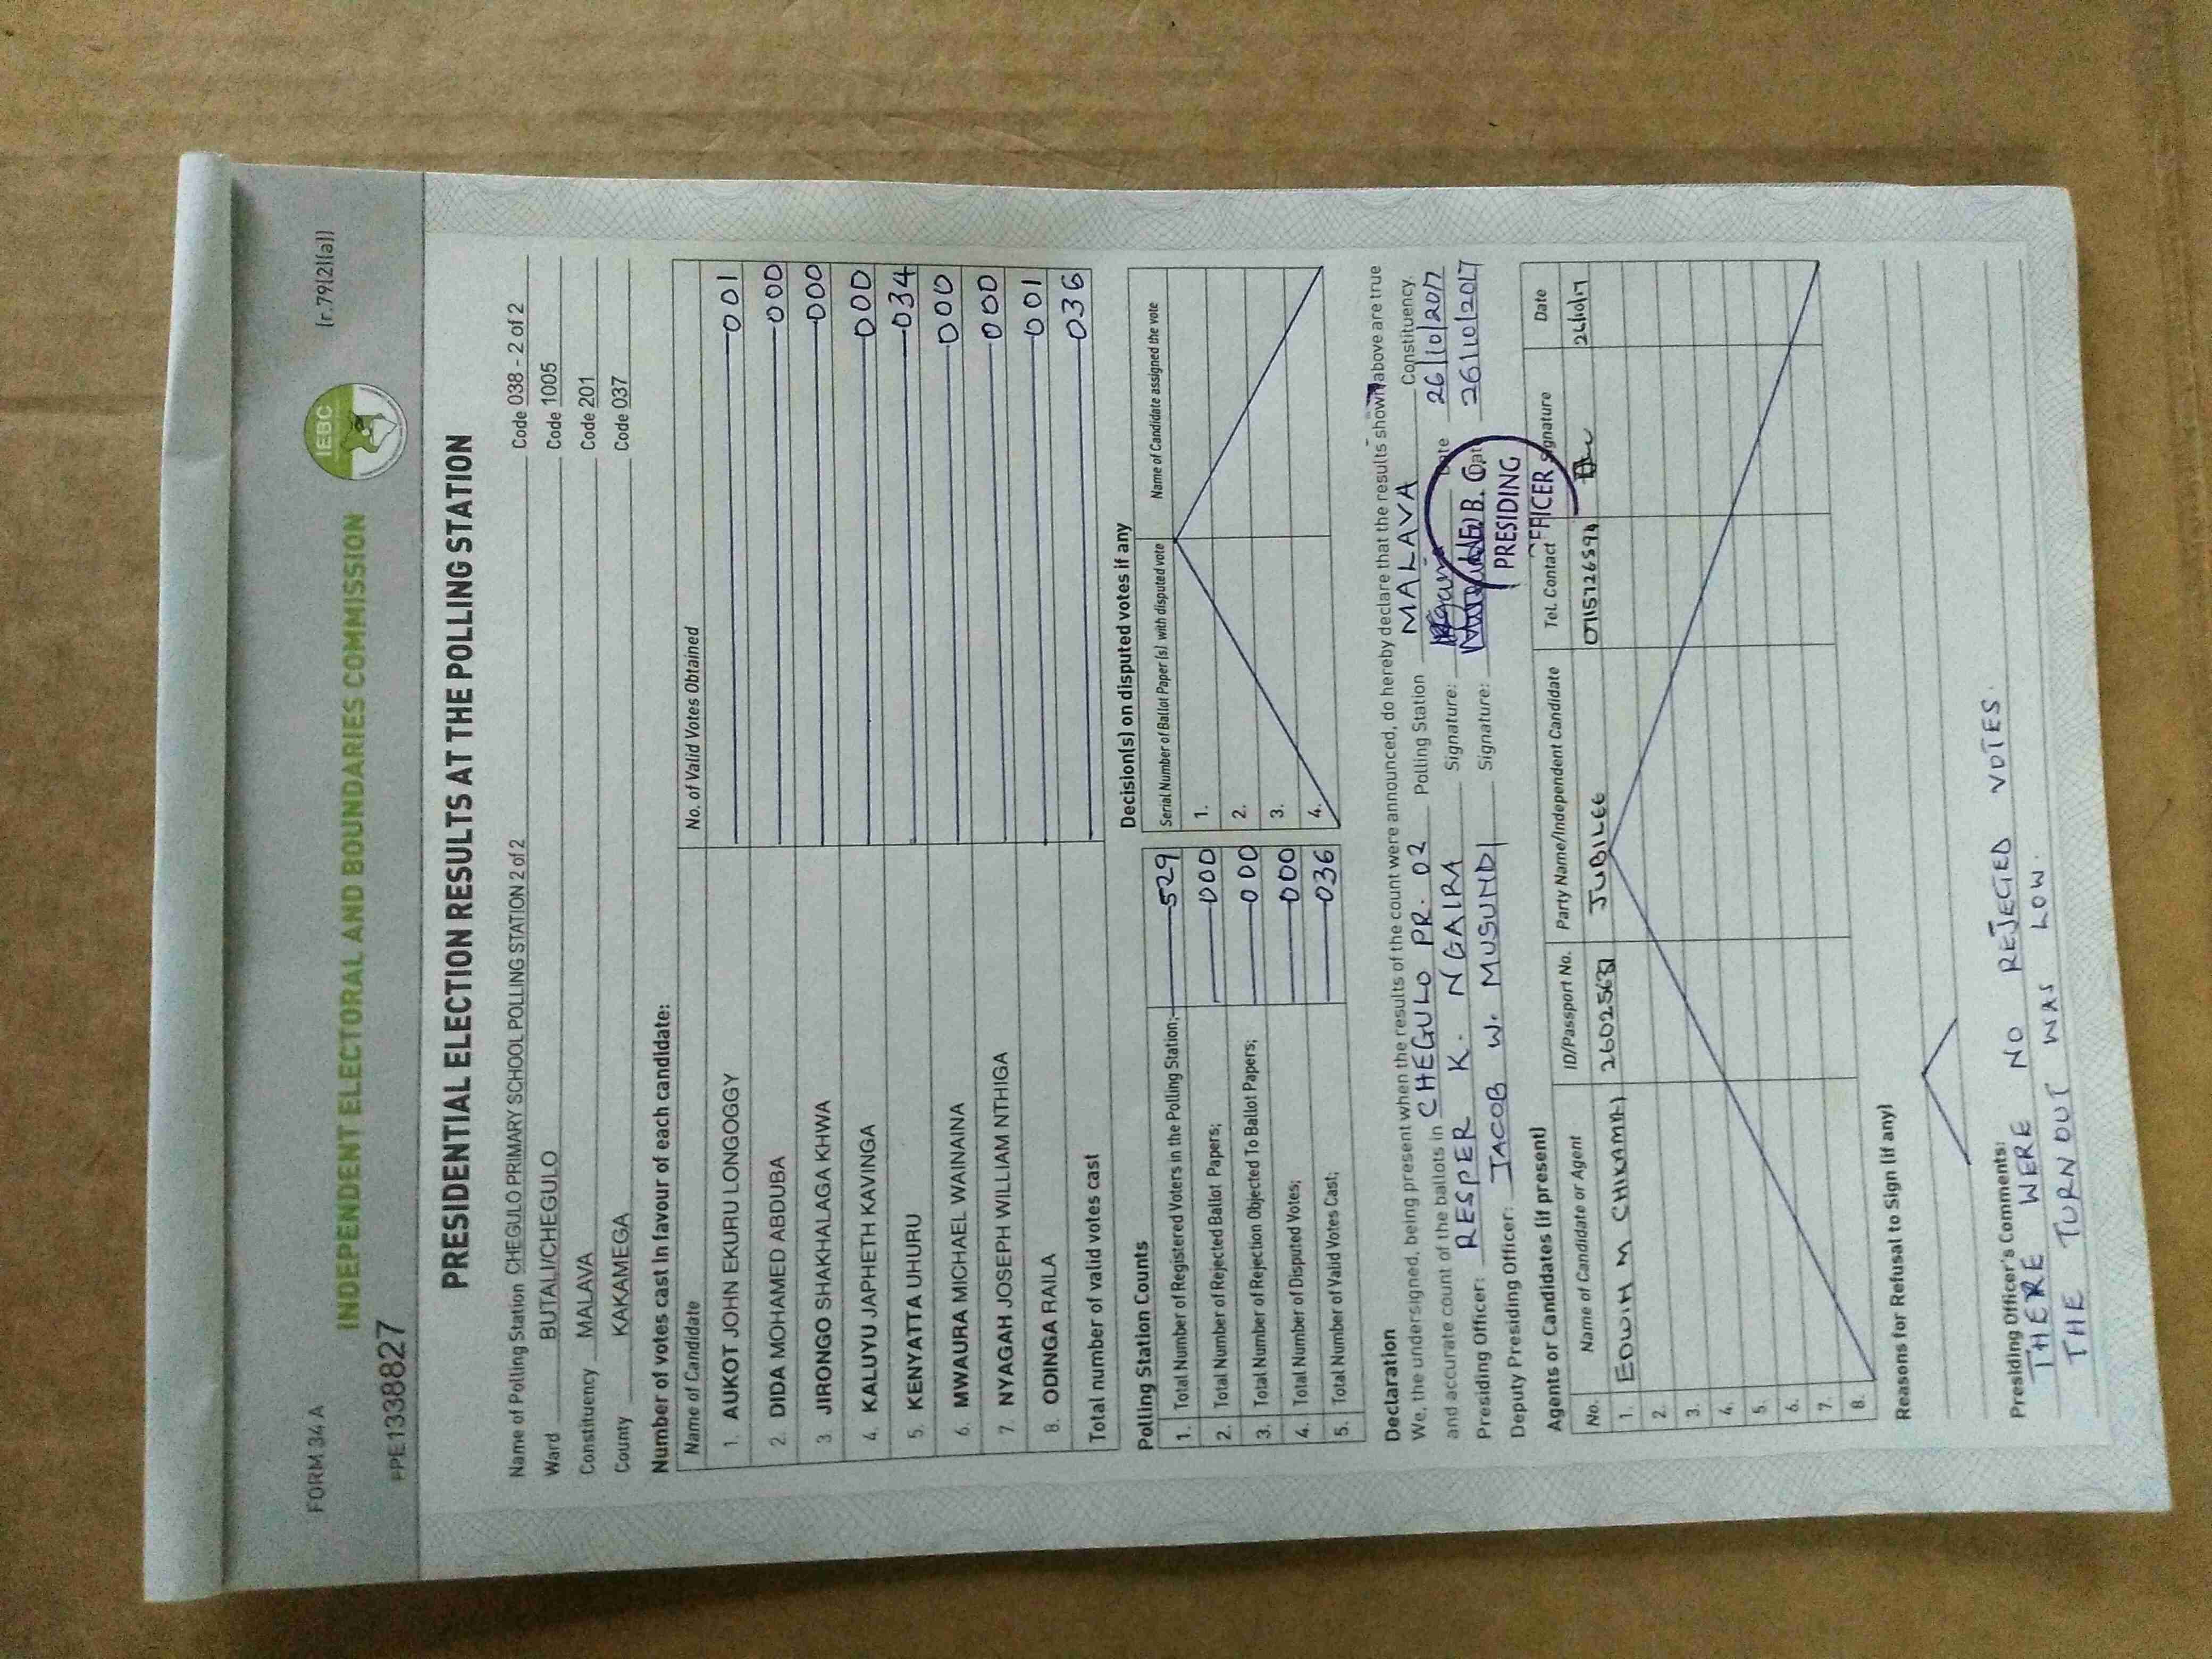 FORM 34 A
(r.79(2)(a))
INDEPENDENT ELECTORAL AND BOUNDARIES COMMISSION
IEBC
PE1338827
PRESIDENTIAL ELECTION RESULTS AT THE POLLING STATION
Name of Polling Station CHEGULO PRIMARY SCHOOL POLLING STATION 2 of 2 Code 038 - 2 of 2
Ward BUTALI/CHEGULO Code 1005
Constituency MALAVA Code 201
County KAKAMEGA Code 037
Number of votes cast in favour of each candidate:
Name of Candidate No. of Valid Votes Obtained
1. AUKOT JOHN EKURU LONGOGGY 001
2. DIDA MOHAMED ABDUBA 000
3. JIRONGO SHAKHALAGA KHWA 000
4. KALUYU JAPHETH KAVINGA 000
5. KENYATTA UHURU 034
6. MWAURA MICHAEL WAINAINA 000
7. NYAGAH JOSEPH WILLIAM NTHIGA 000
8. ODINGA RAILA 001
Total number of valid votes cast 036
Polling Station Counts
1. Total Number of Registered Voters in the Polling Station; 529
2. Total Number of Rejected Ballot Papers; 000
3. Total Number of Rejection Objected To Ballot Papers; 000
4. Total Number of Disputed Votes; 000
5. Total Number of Valid Votes Cast; 036
Decision(s) on disputed votes if any
Serial Number of Ballot Paper (s) with disputed vote Name of Candidate assigned the vote
1.
2.
3.
4.
Declaration
We, the undersigned, being present when the results of the count were announced, do hereby declare that the results shown above are true
and accurate count of the ballots in CHEGULO PR. 02 Polling Station MALAVA Constituency.
Presiding Officer: RESPER K. NGAIRA Signature: Date 26/10/2017
Deputy Presiding Officer: JACOB W. MUSUNDI Signature: 26/10/2017
PRESIDING
OFFICER
Agents or Candidates (if present)
No. Name of Candidate or Agent ID/Passport No. Party Name/Independent Candidate Tel. Contact Signature Date
1. EDWIN M JUBILEE 26/10/17
2.
3.
4.
5.
6.
7.
8.
Reasons for Refusal to Sign (if any)
Presiding Officer's Comments:
THERE WERE NO REJECTED VOTES.
THE TURNOUT WAS LOW.